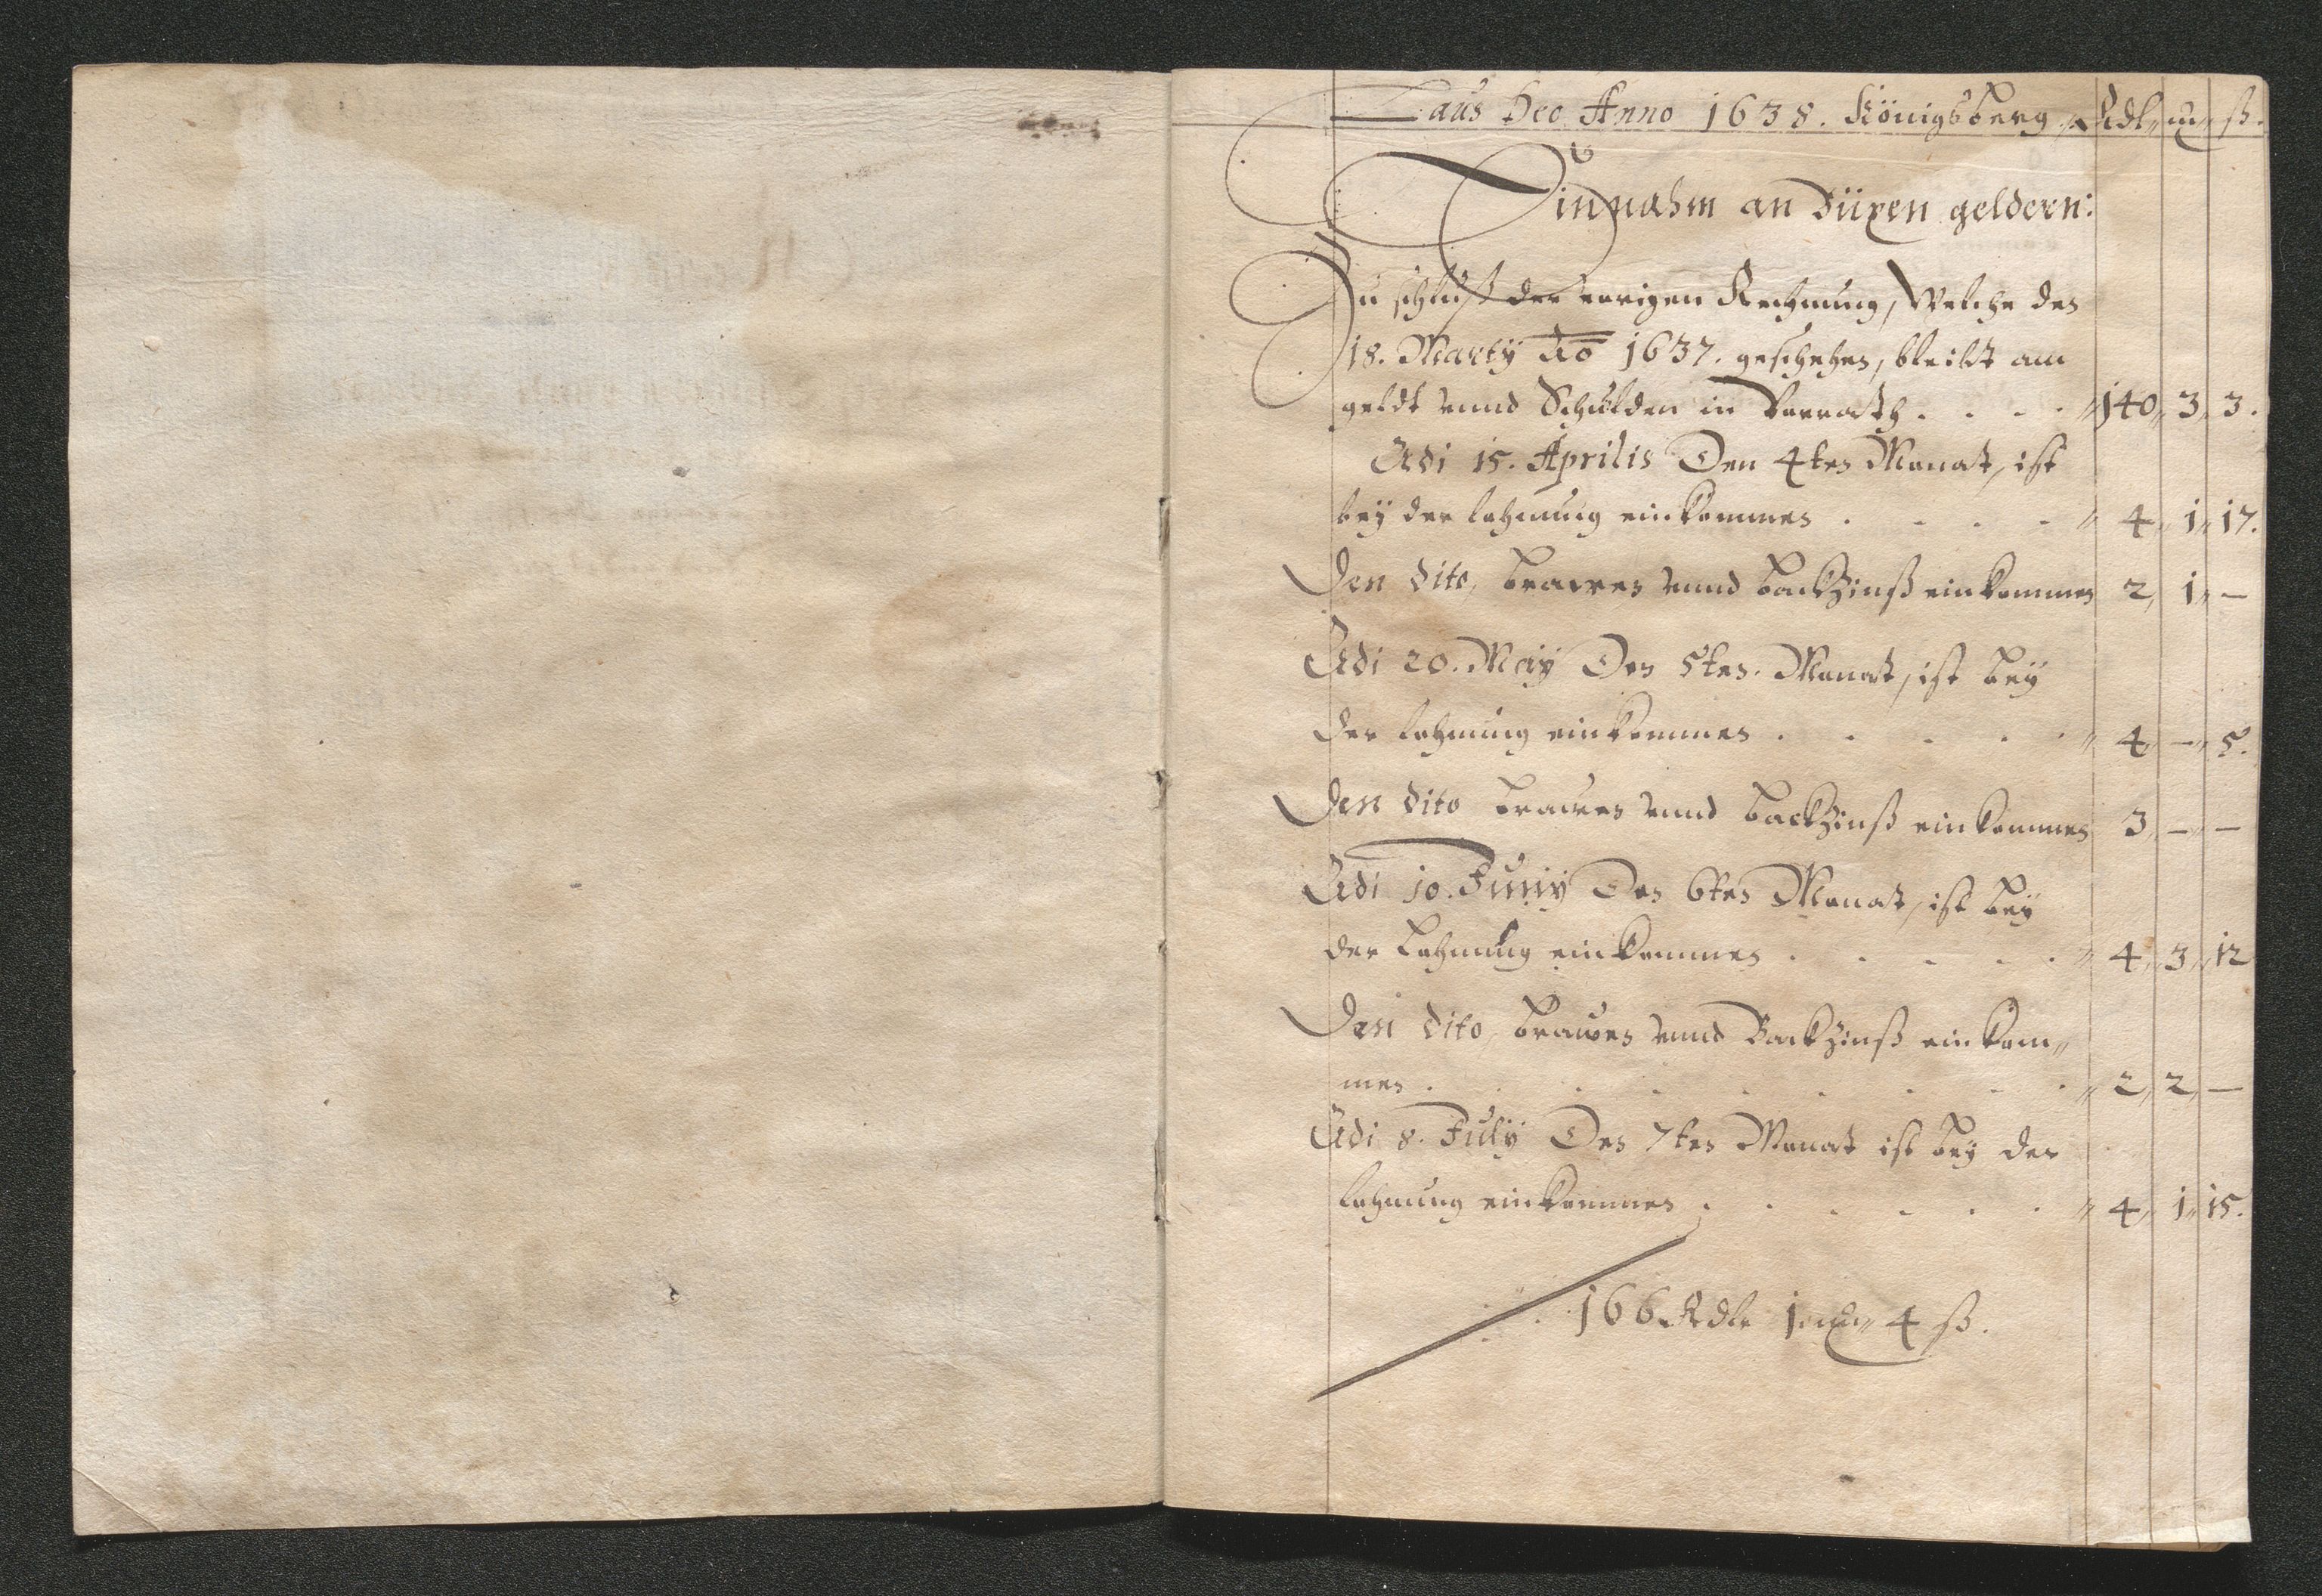 Laus Deo Anno 1638. Königsberg Rdl m ß.
Einnahm an Büxen geldern:
Zu schluß der vorigen Rechnung, Welche den
18. Marty Ao 1637. geschehen, bleibt am
geldt vnnd Schulden in Vorrath . . . . 140 3 3.
Adi 15. Aprilis Den 4ten Monat, ist
bey der lohnung einkommen . . . . 4 1 17.
Den dito, brawen vnnd backzinß einkommen 2 1 —
Adi 20. May Den 5ten. Monat, ist bey
der lohnung einkommen . . . . . 4 — 5.
Den dito brawen vnnd backzinß einkommen 3 — —
Adi 10. Juny Den 6ten Monat, ist bey
der Lohnung einkommen . . . . . 4 3 12
Den dito, brawen vnnd Backzinß einkom„
men . . . . . . . . 2 2 —
Adi 8. July Den 7ten Monat ist bey der
lohnung einkommen . . . . . . 4 1 15.
166 Rdl 1 m 4 ß.